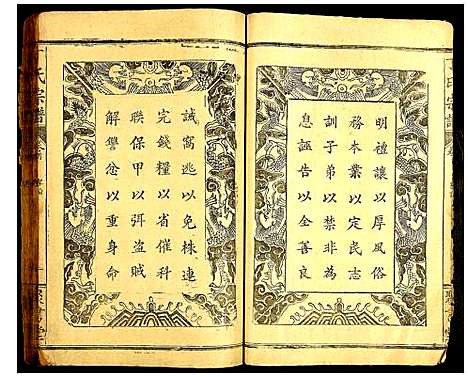 明禮讓以厚風俗
務本業以定民志
訓子弟以禁非為
息誣告以全善良
誡窩逃以免株連
完錢糧以省催科
聯保甲以弭盜賊
解讐忿以重身命
氏宗譜